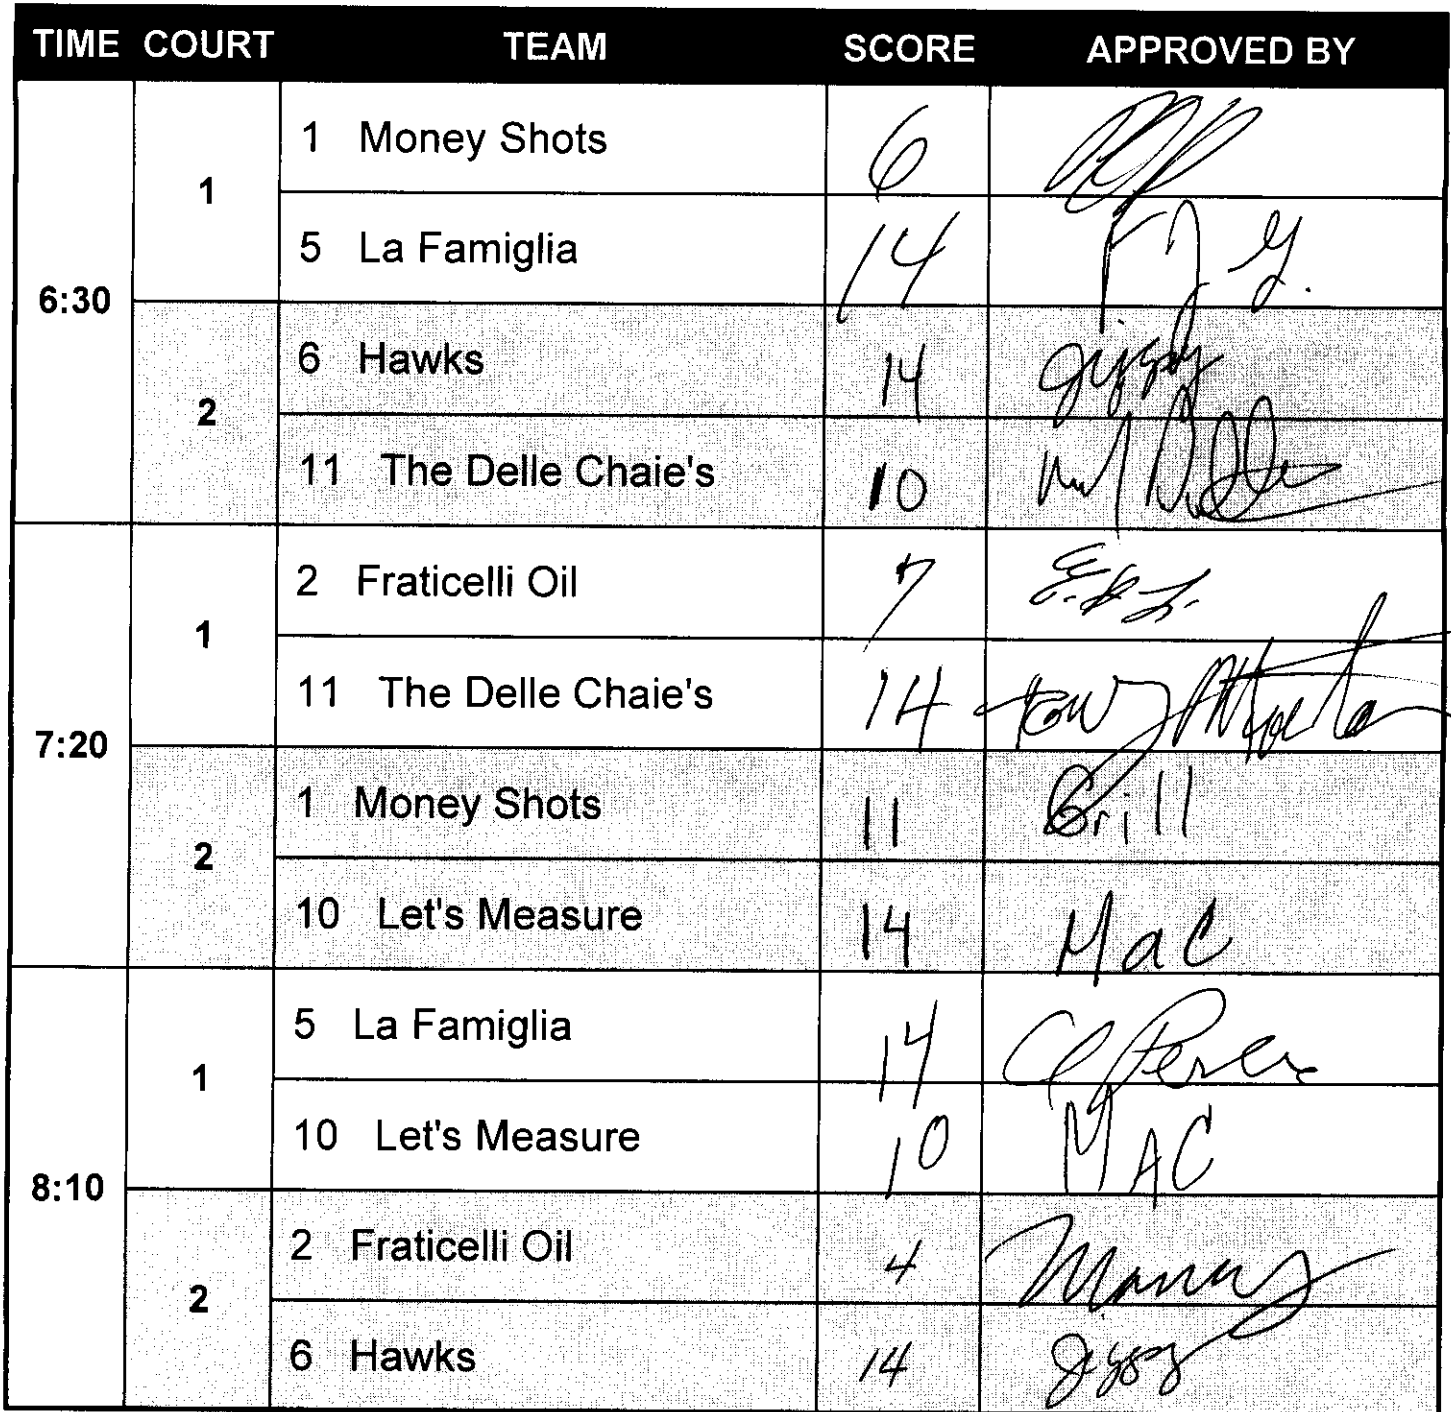 TIME COURT TEAM SCORE APPROVED BY
6:30
1
1 Money Shots 6
5 La Famiglia 14
2
6 Hawks 14
11 The Delle Chaie's 10
7:20
1
2 Fraticelli Oil 7
11 The Delle Chaie's 14
2
1 Money Shots 11 Grill
10 Let's Measure 14 Mac
8:10
1
5 La Famiglia 14
10 Let's Measure 10 MAC
2
2 Fraticelli Oil 4
6 Hawks 14